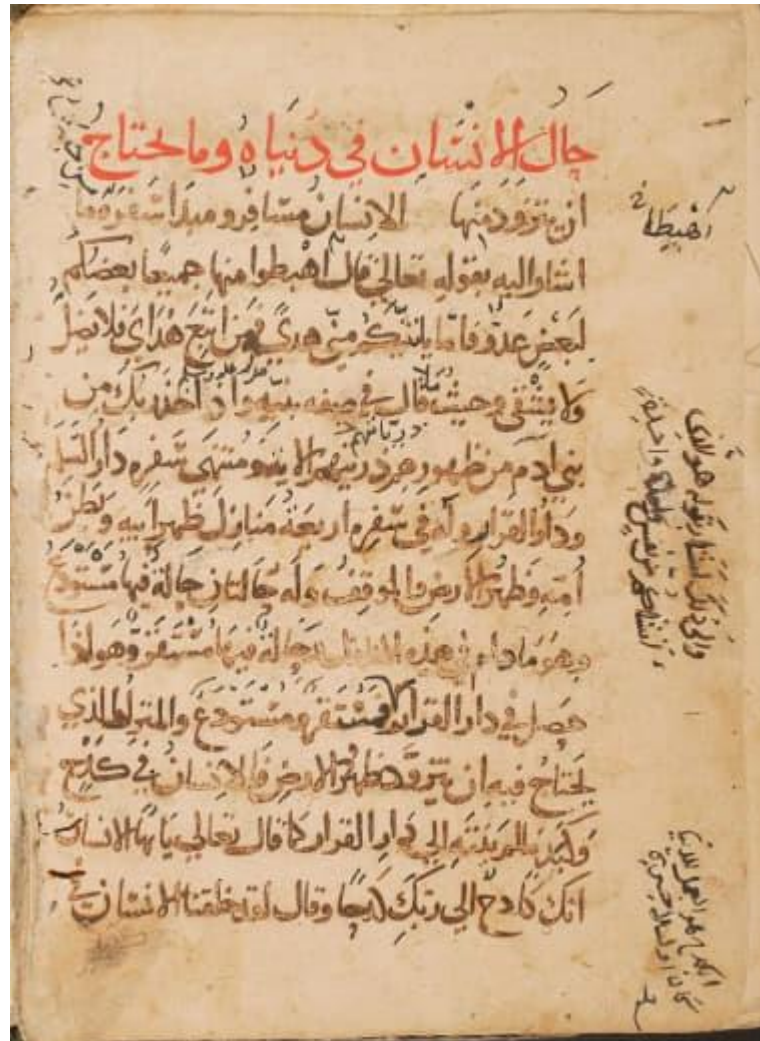 حال الانسان في دنياه وما يحتاج
ان يتزود منها الانسان مسافر ومبدأ سفره ما
اشار اليه بقوله تعالى قال اهبطوا منها جميعا بعضكم
لبعض عدو فاما ياتينكم مني هدى فمن اتبع هداي فلا يضل
ولا يشقى وحيث قال في صفه بنيه واذ اخذ ربك من
بني ادم من ظهورهم ذريتهم الاية ومنتهى سفره دار السلام
ودار القرار وله في سفره اربعة منازل ظهر ابيه وبطن
امه وظهر الارض والموقف وله حالتان حالة فيها مستودع
وهو ما دام في هذه المنازل وحالة فيها مستقر وهو اذا
حصل في دار القرار فمستقر ومستودع والمنزل الذي
يحتاج فيه ان يتزود ظهر الارض فالانسان في كدح
وكبد ما لم ينته الى دار القرار كما قال تعالى يا ايها الانسان
انك كادح الى ربك كدحا وقال لقد خلقنا الانسان في
اهبطا
والى ذلك اشار بقوله هو الذي
انشاكم من نفس واحدة